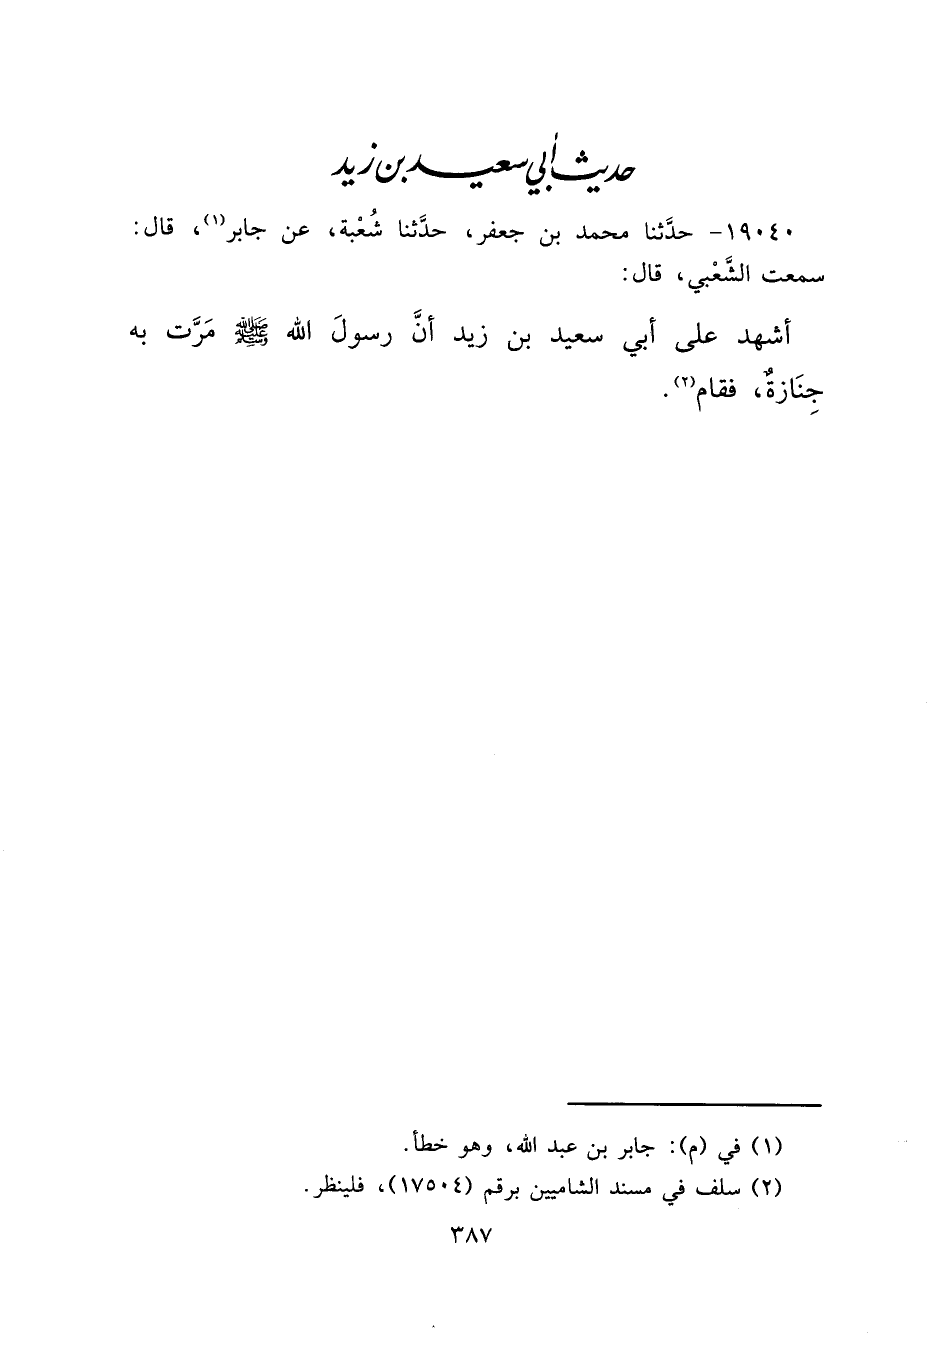 حديث أبي سعيد بن زيد
١٩٠٤٠- حدَّثنا محمد بن جعفر، حدَّثنا شُعْبة، عن جابر(١)، قال:
سمعت الشَّعْبي، قال:
أشهد على أبي سعيد بن زيد أنَّ رسولَ الله ﷺ مَرَّت به
جِنَازةٌ، فقام(٢).
(١) في (م): جابر بن عبد الله، وهو خطأ.
(٢) سلف في مسند الشاميين برقم (١٧٥٠٤)، فلينظر.
٣٨٧